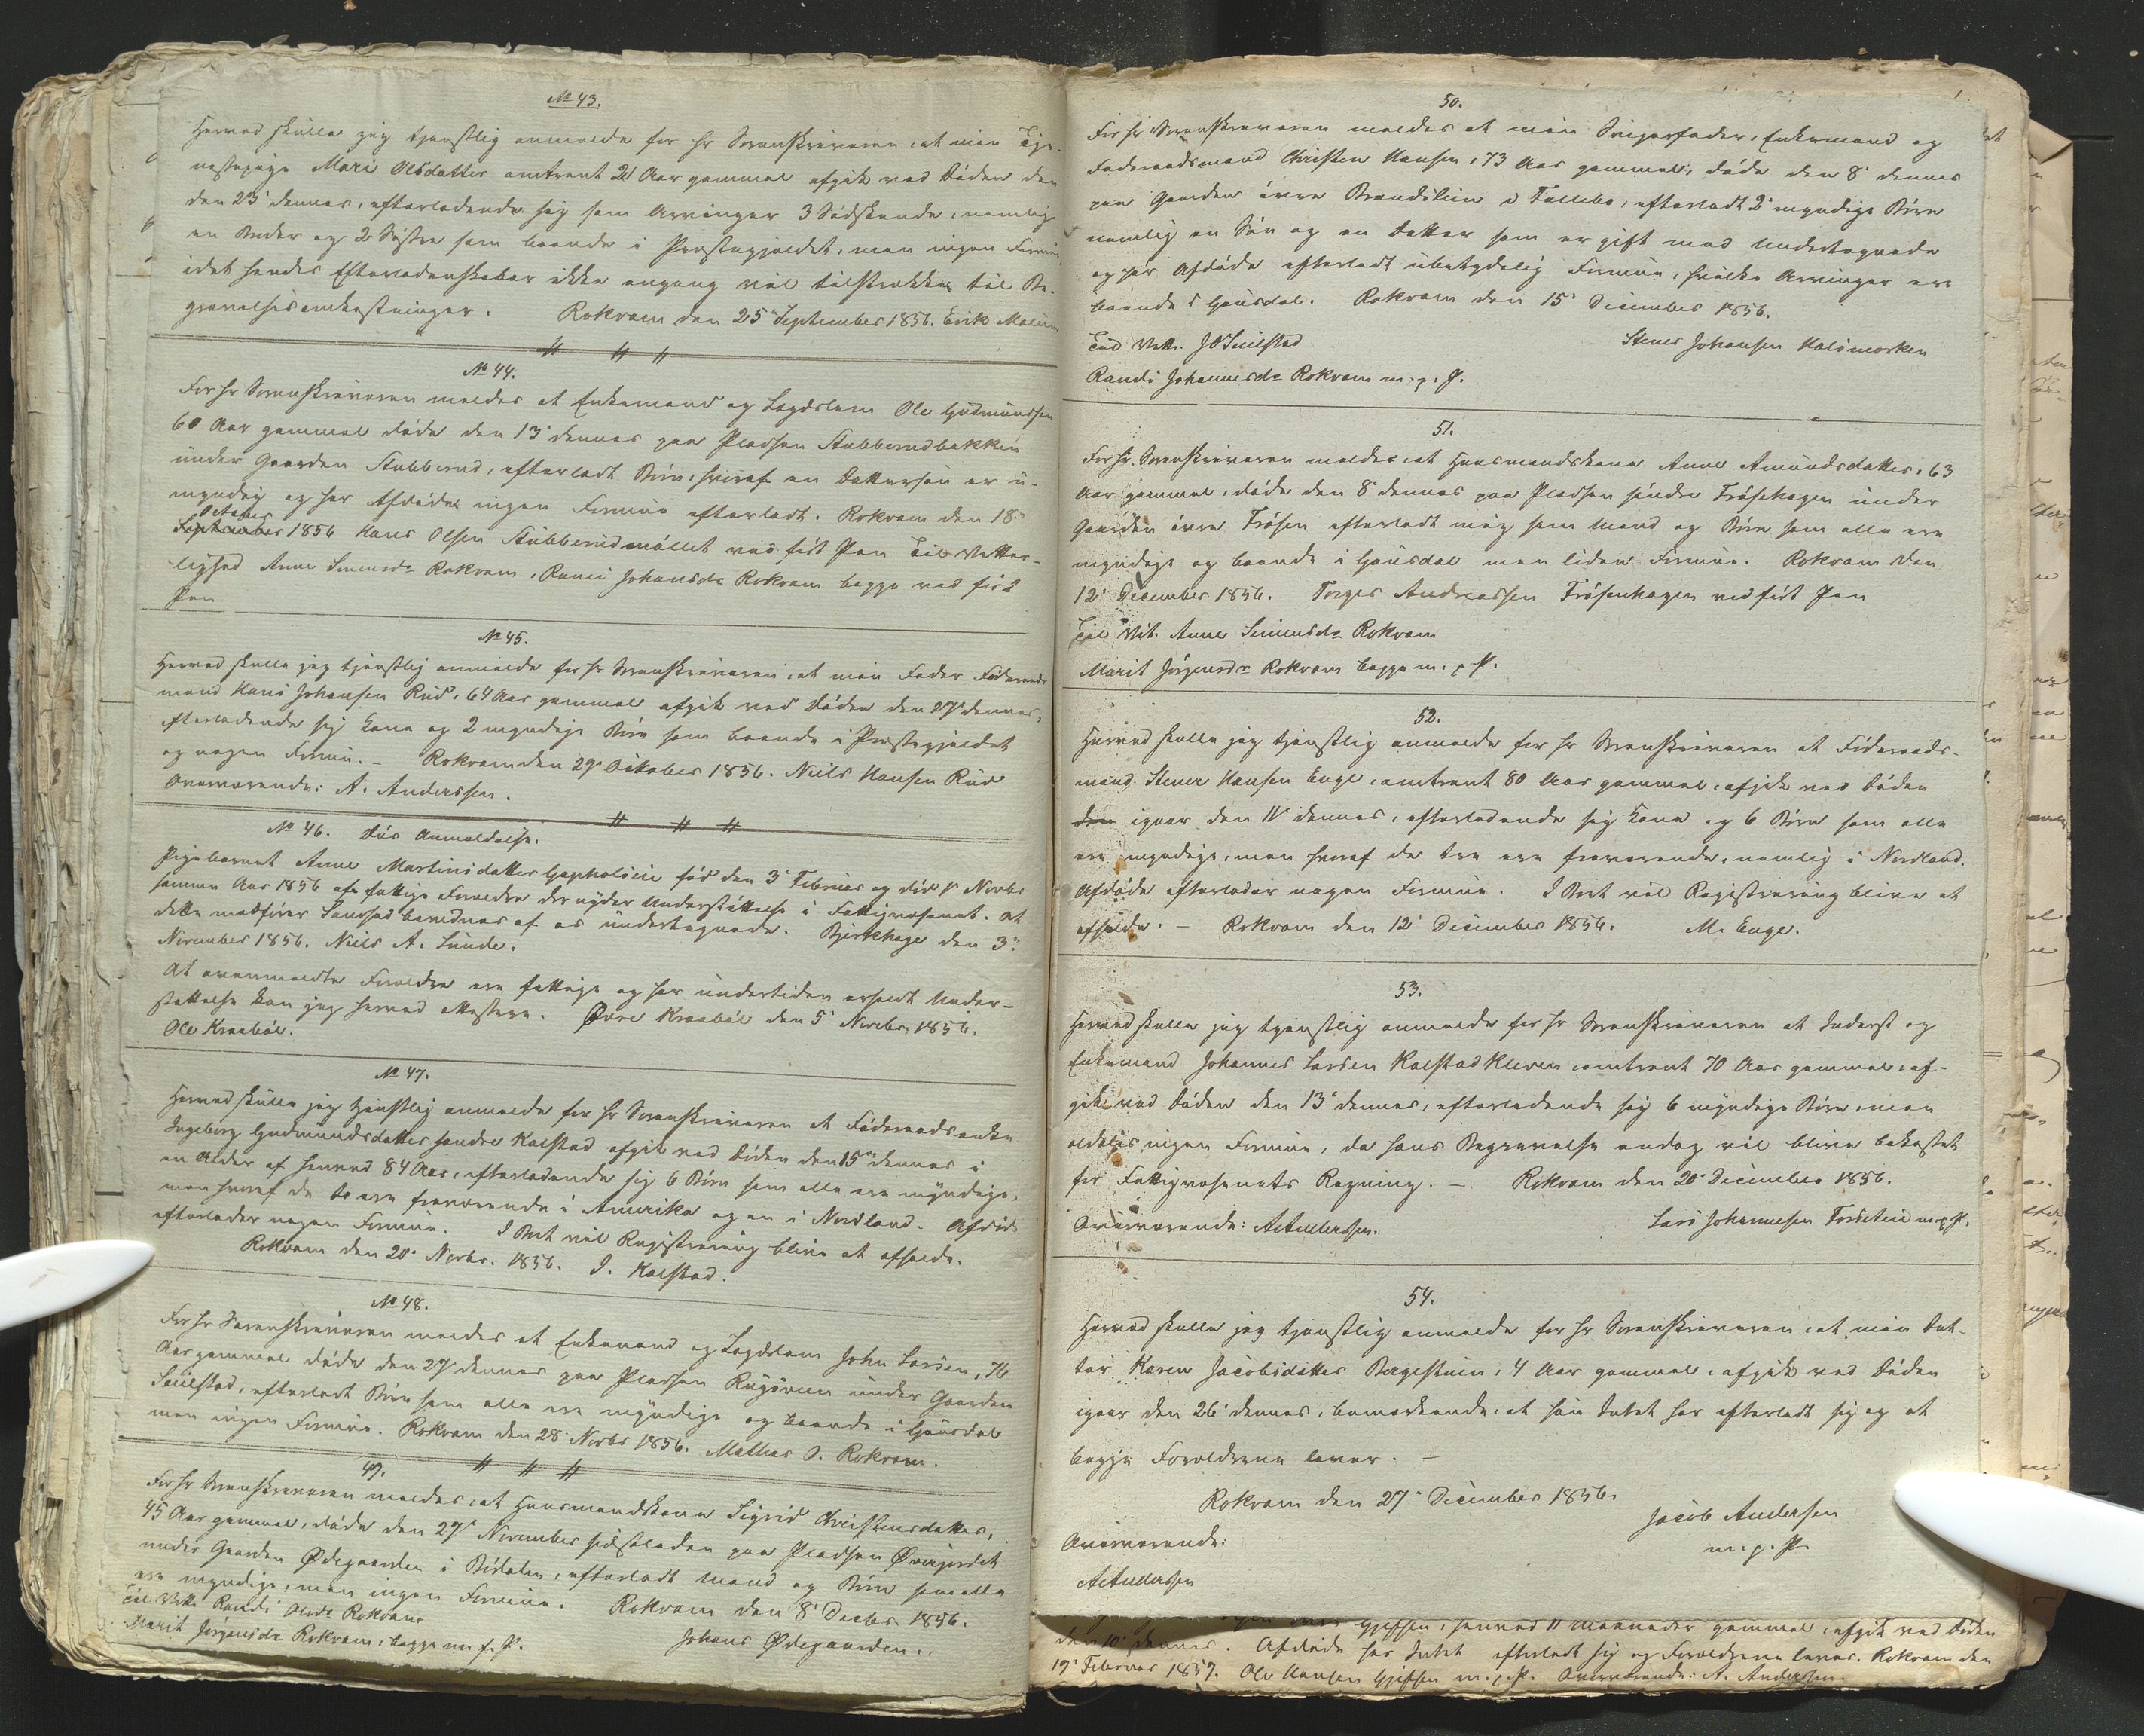 № 43.
Herved skulle jeg tjenstlig anmelde for Hr Sorenskriveren, at min Tje-
nestepige Mari Olsdatter omtrent 21 Aar gammel afgik ved Døden den
den 23' dennes, efterladende sig som Arvinger 3 Sødskende, nemlig
en Broder og 2 Søstre som boende i Præstegjeldet, men ingen Formue,
idet hendes Efterladenskaber ikke engang vil tilstrække til Be-
gravelsesomkostninger. Rokvam den 25' September 1856. Erik
№ 44.
For Hr Sorenskriveren meldes at Enkemand og Lægdslem Ole Gudmundsen
60 Aar gammel døde den 13' dennes paa Pladsen Stubberudbakken
under Gaarden Stubberud, efterladt Børn, hvoraf en Dattersøn er u-
myndig og har Afdøde ingen Formue efterladt. Rokvam den 18'
October
September 1856 Hans Olsen Stubberudmøllet ved ført Pen Til Vitter-
lighed Anne Simensdr Rokvam, Johansdr Rokvam begge ved ført
Pen
№ 45.
Herved skulle jeg tjenstlig anmelde for Hr Sorenskriveren, at min Fader Føderaads-
mand Hans Johansen Rud, 64 Aar gammel afgik ved Døden den 27' dennes,
efterladende sig Kone og 2 myndige Børn som boende i Præstegjeldet
og nogen Formue. – Rokvam den 29' October 1856. Niels Hansen Rud
Overværende: A. Anderssen.
№ 46. Døds Anmeldelse.
Pigebarnet Anne Martinsdatter født den 3' Februar og død 1' Novbr
samme Aar 1856 af fattige Forældre der nyder Understøttelse i Fattigvæsenet. At
dette medfører Sandhed bevidnes af os undertegnede. Bjørkhage den 3'
November 1856. Niels A. Lunde.
At ovenmeldte Forældre ere fattige og har undertiden erholdt Under-
støttelse kan jeg herved attestere. Øvre Kraabøl den 5' Novbr 1856.
Ole Kraabøl.
№ 47.
Herved skulle jeg tjenstlig anmelde for Hr Sorenskriveren at Føderaadsenke
Ingeborg Gudmundsdatter søndre Kalstad afgik ved Døden den 15' dennes i
en Alder af henved 84 Aar, efterladende sig 6 Børn som alle ere myndige,
men hvoraf de to ere fraværende i Amerika og en i Nordland. Afdøde
efterlader nogen Formue. I Boet vil Registrering blive at afholde.
Rokvam den 20' Novbr. 1856. J. Kalstad.
№ 48.
For Hr Sorenskriveren meldes at Enkemand og Lægdslem John Larsen, 76
Aar gammel døde den 27' dennes paa Pladsen under Gaarden
Seielstad, efterladt Børn som alle ere myndige og boende i Gausdal
men ingen Formue. Rokvam den 28' Novbr 1856. Mathias O. Rokvam.
49.
For Hr Sorenskriveren meldes, at Huusmandskone Sigrid Christensdatter,
45 Aar gammel, døde den 27' November sidstleden paa Pladsen Øvergjerdet
under Gaarden Ødegaarden i Bødalen, efterladt Mand og Børn som alle
ere myndige, men ingen Formue. Rokvam den 8' Decbr 1856.
Til Vitt. Randi Olsdr Rokvam
Marit Jørgensdr Rokvam, begge m. p. P. Johans Ødegaarden.
50.
For Hr Sorenskriveren meldes at min Svigerfader, Enkemand og
Føderaadsmand Christen Hansen, 73 Aar gammel, døde den 8' dennes
paa Gaarden øvre Brandslien i Follebo, efterladt 2' myndige Børn
nemlig en Søn og en Datter som er gift med Undertegnede
og har Afdøde efterladt ubetydelig Formue, hvilke Arvinger ere
boende i Gausdal. Rokvam den 15' December 1856.
Til Vitt. J O Seielstad Stener Johansen Holsmorken
Randi Johannesdr Rokvam m. p. P.
51.
For Hr. Sorenskriveren meldes at Huusmandskone Anne Amundsdatter, 63
Aar gammel, døde den 8' dennes paa Pladsen søndre Frøsehagen under
Gaarden øvre Frøsen efterladt mig som Mand og Børn som alle ere
myndige og boende i Gausdal men liden Formue. Rokvam den
12' December 1856. Torger Andreassen Frøsenhagen ved ført Pen
Til Vit. Anne Simensdr Rokvam
Marit Jørgensdr Rokvam begge m. p. P.
52.
Herved skulle jeg tjenstlig anmelde for Hr Sorenskriveren at Føderaads-
mand Stener Hansen Enge, omtrent 80 Aar gammel, afgik ved Døden
den igaar den 11' dennes, efterladende sig Kone og 6 Børn som alle
ere myndige, men hvoraf de tre ere fraværende, nemlig i Nordland.
Afdøde efterlader nogen Formue. I Boet vil Registrering blive at
afholde. – Rokvam den 12' December 1856. M. Enge.
53.
Herved skulle jeg tjenstlig anmelde for Hr Sorenskriveren at Inderst og
Enkemand Johannes Larsen Kalstadkleven omtrent 70 Aar gammel, af-
gik ved Døden den 13' dennes, efterladende sig 6 myndige Børn, men
aldeles ingen Formue, da hans Begravelse endog vil blive bekostet
for Fattigvæsenets Regning. – Rokvam den 20' December 1856.
Overværende: A Anderssen. Lars Johannesen m. p. P.
54.
Herved skulle jeg tjenstlig anmelde for Hr Sorenskriveren, at min Dat-
ter Karen Jacobsdatter Bergestuen, 4 Aar gammel, afgik ved Døden
igaar den 26' dennes, bemærkende, at hun Intet har efterladt sig og at
begge Forældrene lever. –
Rokvam den 27' December 1856.
Jacob Andersen
m. p. P.
Overværende:
A Anderssen
henved 11 Maaneder gammel, afgik ved Døden
den 10' dennes. Afdøde har Intet efterladt sig og Forældrene lever. Rokvam den
19' Februar 1857. Ole Hansen m. p. P. Overværende: A. Anderssen.